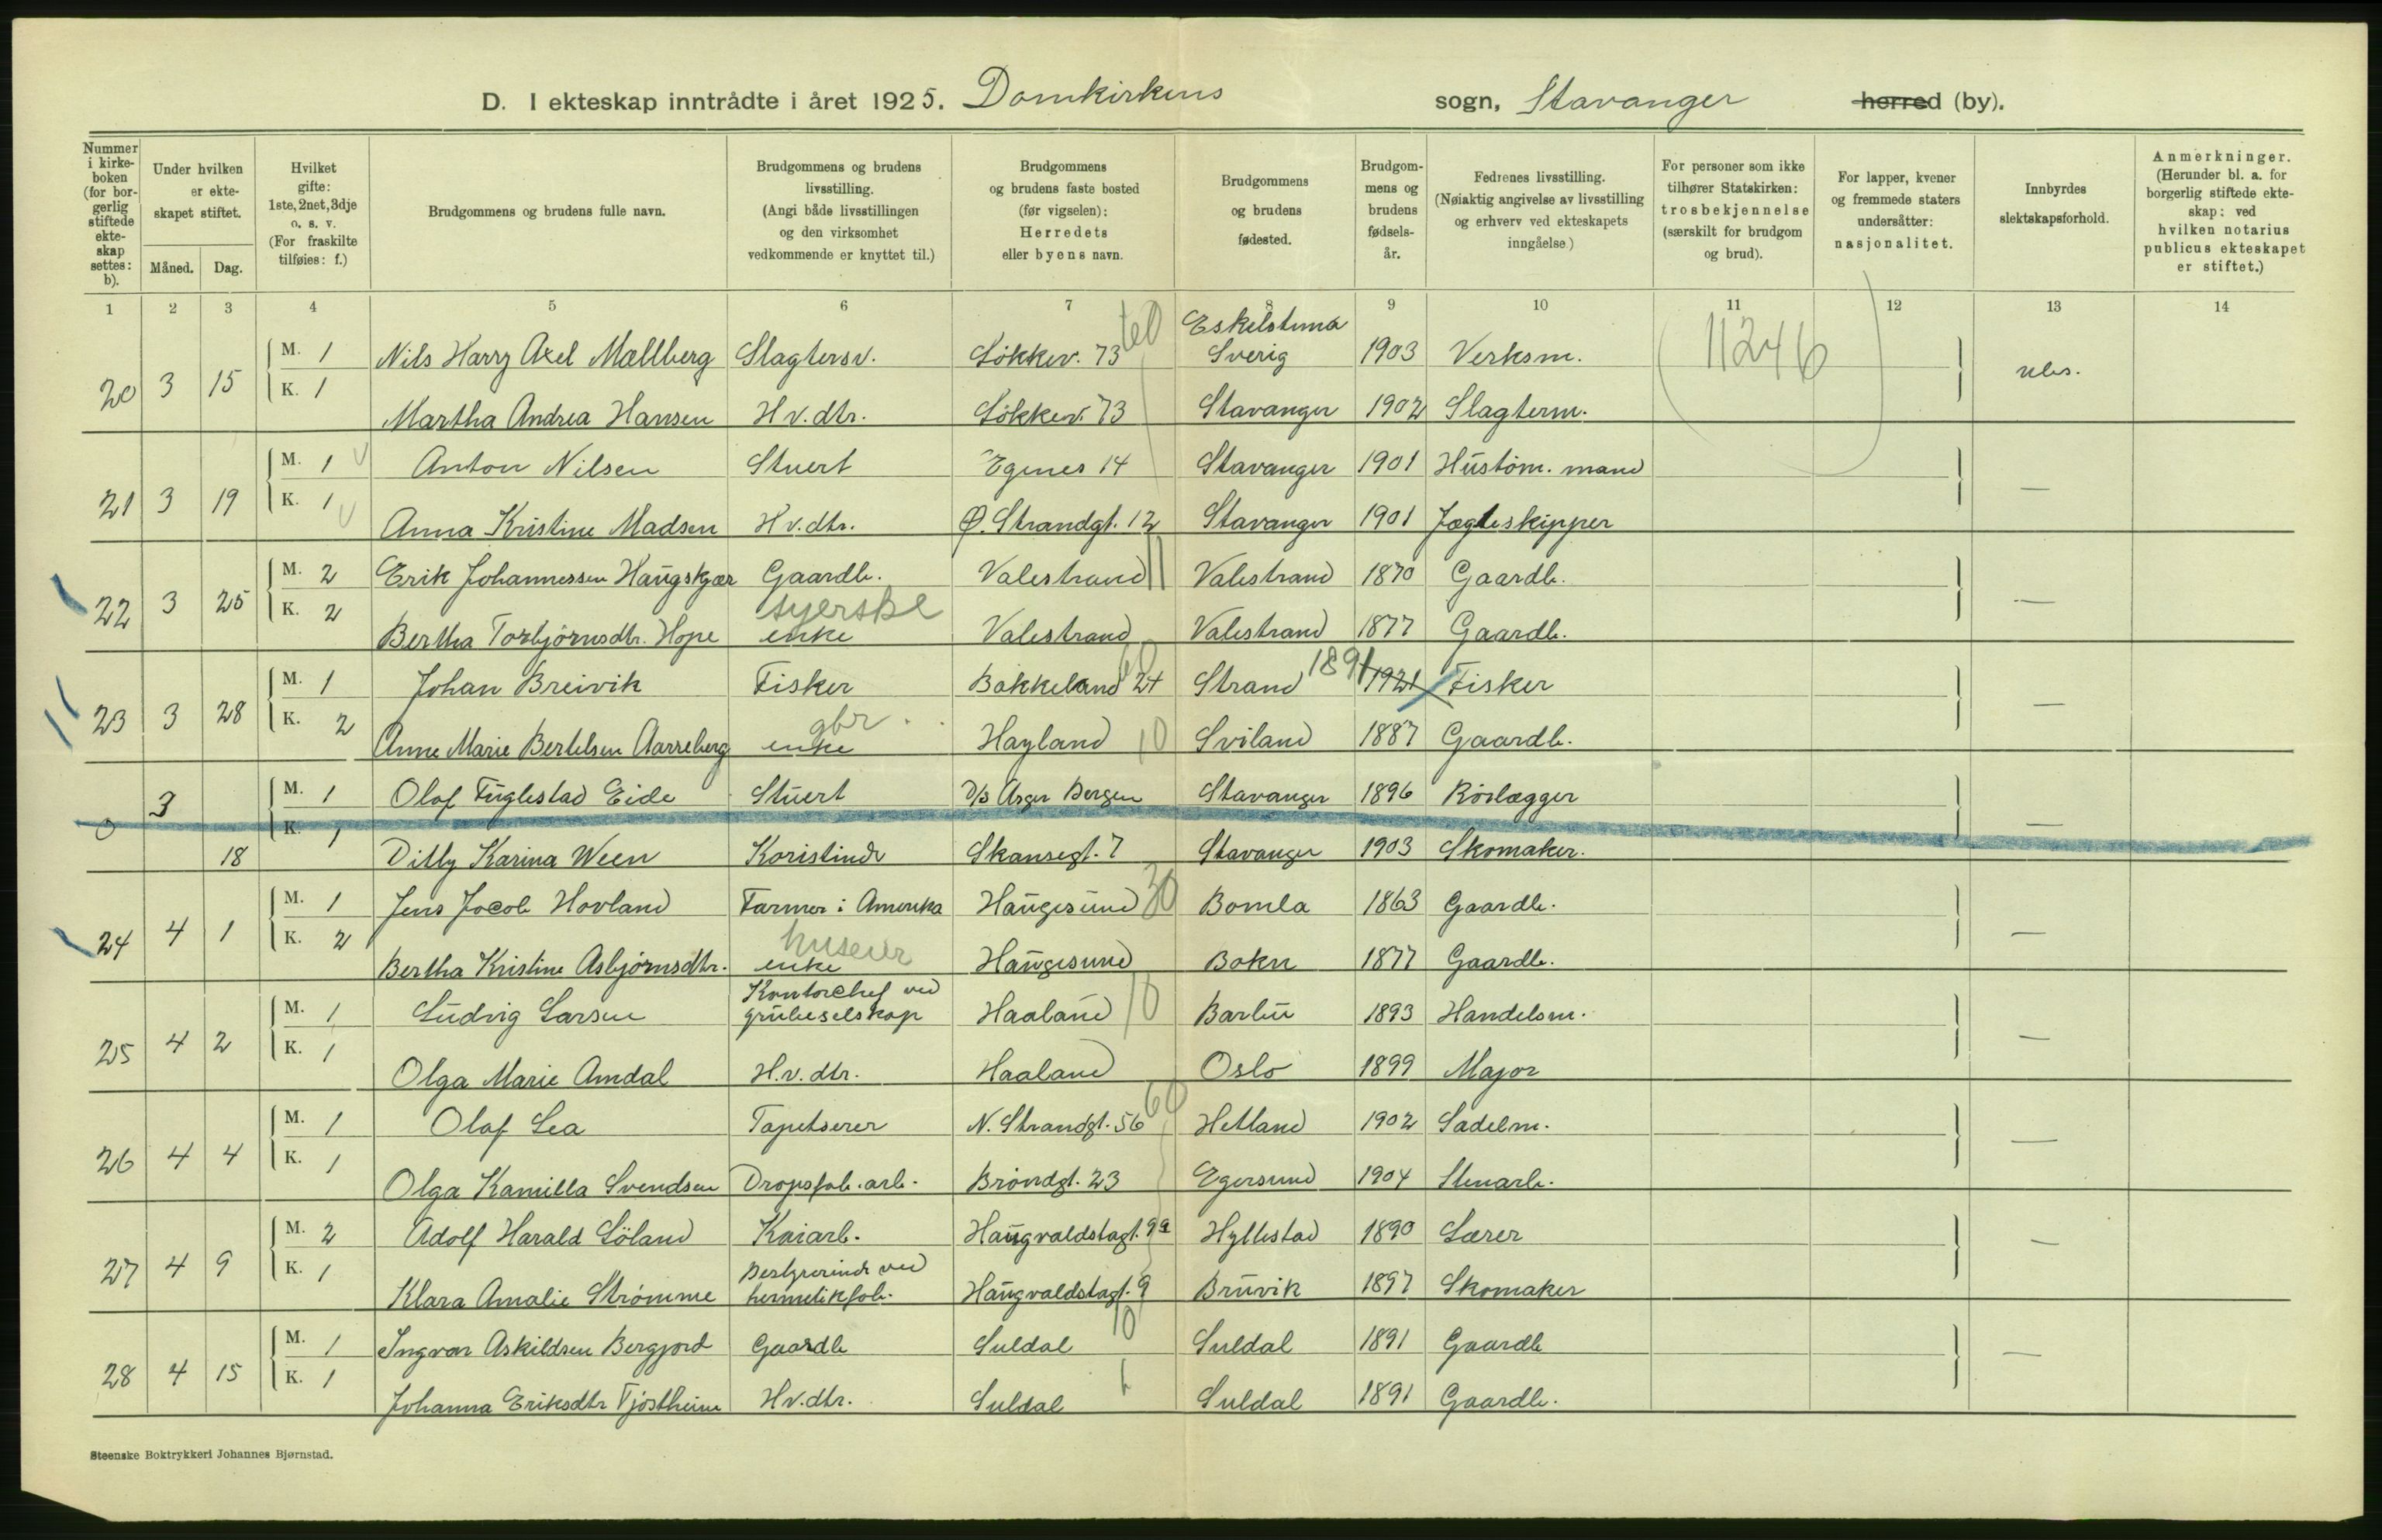 D. I ekteskap inntrådte i året 1925. Domkirkens sogn, Stavanger herred (by).
Nummer i kirkeboken (for borgerlig stiftede ekteskap settes: b).
Under hvilken er ekteskapet stiftet. Måned. Dag.
Hvilket gifte: 1ste, 2net, 3dje o. s. v. (For fraskilte tilføies: f.)
Brudgommens og brudens fulle navn.
Brudgommens og brudens livsstilling. (Angi både livsstillingen og den virksomhet vedkommende er knyttet til.)
Brudgommens og brudens faste bosted (før vigselen): Herredets eller byens navn.
Brudgommens og brudens fødested.
Brudgommens og brudens fødselsår.
Fedrenes livsstilling. (Nøiaktig angivelse av livsstilling og erhverv ved ekteskapets inngåelse.)
For personer som ikke tilhører Statskirken: trosbekjennelse (særskilt for brudgom og brud).
For lapper, kvener og fremmede staters undersåtter: nasjonalitet.
Innbyrdes slektskapsforhold.
Anmerkninger. (Herunder bl. a. for borgerlig stiftede ekteskap: ved hvilken notarius publicus ekteskapet er stiftet.)
1 2 3 4 5 6 7 8 9 10 11 12 13 14
20 3 15 M. 1 Nils Harry Axel Mællberg Slagtersv. Løkkev. 73 60 Eskelstuna Sverig 1903 Verksm. (11246) ubs.
K. 1 Martha Andrea Hansen Hv.dtr. Løkkev. 73 Stavanger 1902 Slagterm.
21 3 19 M. 1 Anton Nilsen Stuert Egenes 14 Stavanger 1901 Hustøm. mand —
K. 1 Anna Kristine Madsen Hv.dtr. Ø. Strandgt. 12 Stavanger 1901 Jægteskipper
22 3 25 M. 2 Erik Johannessen Haugskjær Gaardb. Valestrand 11 Valestrand 1870 Gaardb. —
K. 2 Bertha Torbjörnsdtr. Hope syerske enke Valestrand Valestrand 1877 Gaardb.
23 3 28 M. 1 Johan Breivik Fisker Bakkeland 24 Strand 1891 1921 Fisker —
K. 2 Anne Marie Bertelsen Aarreberg gbr. enke Høyland 10 Sviland 1887 Gaardb.
0 3 18 M. 1 Olaf Fuglestad Eide Stuert D/S Asger Bergen Stavanger 1896 Rørlægger —
K. 1 Dilly Karina Ween Koristinde Skansegt. 7 Stavanger 1903 Skomaker.
24 4 1 M. 1 Jens Jacob Hovland Farmer i Amerika Haugesund 30 Bømla 1863 Gaardb. —
K. 2 Bertha Kristine Asbjørnsdtr. huseier enke Haugesund Bokn 1877 Gaardb.
25 4 2 M. 1 Ludvig Larsen Kontorchef ved grubeselskap Haaland 10 Barbu 1893 Handelsm. —
K. 1 Olga Marie Amdal H.v. dtr. Haaland Oslo 1899 Major
26 4 4 M. 1 Olaf Lea Tapetserer N. Strandgt. 56 60 Hetland 1902 Sadelm. —
K. 1 Olga Kamilla Svendsen Dropsfab. arb. Brøndgt. 23 Egersund 1904 Stenarb.
27 4 9 M. 2 Adolf Harald Löland Kaiarb. Haugvaldstagt. 9a Hyllestad 1890 Lærer —
K. 1 Klara Amalie Strömme Bestyrerinde ved hermetikfab. Haugvaldstagt. 9 Bruvik 1897 Skomaker
28 4 15 M. 1 Ingvar Askildsen Bergjord Gaardb Suldal 10 Suldal 1891 Gaardb —
K. 1 Johanna Eriksdtr Tjöstheim Hv.dtr. Suldal Suldal 1891 Gaardb.
Steenske Boktrykkeri Johannes Bjørnstad.